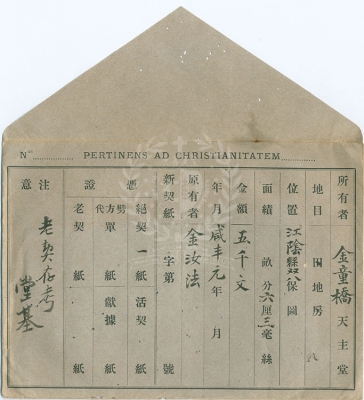 No PERTINENS AD CHRISTIANITATEM
所有者 金童橋 天主堂
地目 田地房
位置 江陰縣双保圖
面績 畝分六厘三毫絲
金額 五千文
年月 咸丰元年 月
原有者 金汝法
新契紙 字第 號
憑證 絕契一紙 活契 紙
代方單 劈 紙 獻據 紙
老契 紙 紙
注意 老契存考
堂基